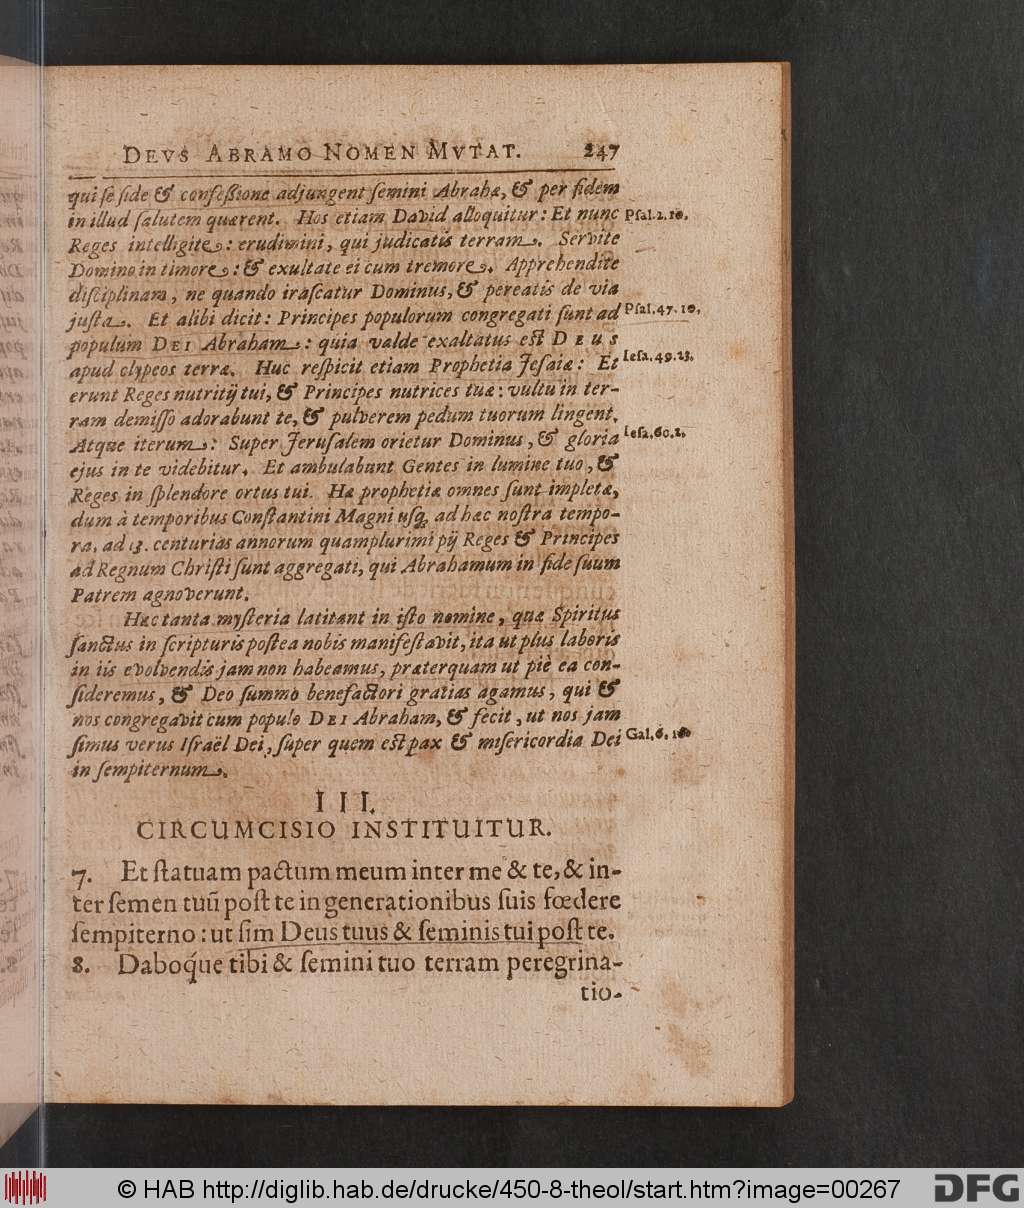 DEVS ABRAMO NOMEN MVTAT. 247
qui se fide & confessione adjungent semini Abrahæ, & per fidem
in illud salutem quærent. Hos etiam David alloquitur: Et nunc Psal.2.10.
Reges intelligite: erudimini, qui judicatis terram. Servite
Domino in timore: & exultate ei cum tremore. Apprehendite
disciplinam, ne quando irascatur Dominus, & pereatis de via
justa. Et alibi dicit: Principes populorum congregati sunt ad Psal.47.10.
populum DEI Abraham: quia valde exaltatus est DEUS
apud clypeos terræ. Huc respicit etiam Prophetia Jesaiæ: Et Iesa.49.23.
erunt Reges nutritij tui, & Principes nutrices tuæ: vultu in ter-
ram demisso adorabunt te, & pulverem pedum tuorum lingent.
Atque iterum: Super Jerusalem orietur Dominus, & gloria Iesa.60.2.
ejus in te videbitur. Et ambulabunt Gentes in lumine tuo, &
Reges in splendore ortus tui. Hæ prophetiæ omnes sunt impletæ,
dum à temporibus Constantini Magni usq; ad hæc nostra tempo-
ra, ad 13. centurias annorum quamplurimi pij Reges & Principes
ad Regnum Christi sunt aggregati, qui Abrahamum in fide suum
Patrem agnoverunt.
Hæc tanta mysteria latitant in isto nomine, quæ Spiritus
sanctus in scripturis postea nobis manifestavit, ita ut plus laboris
in iis evolvendis jam non habeamus, præterquam ut piè ea con-
sideremus, & Deo summo benefactori gratias agamus, qui &
nos congregavit cum populo DEI Abraham, & fecit, ut nos jam
simus verus Israël Dei, super quem est pax & misericordia Dei Gal.6.16
in sempiternum.
III.
CIRCUMCISIO INSTITUITUR.
7. Et statuam pactum meum inter me & te, & in-
ter semen tuũ post te in generationibus suis fœdere
sempiterno: ut sim Deus tuus & seminis tui post te.
8. Daboq́ue tibi & semini tuo terram peregrina-
tio-
© HAB http://diglib.hab.de/drucke/450-8-theol/start.htm?image=00267 DFG